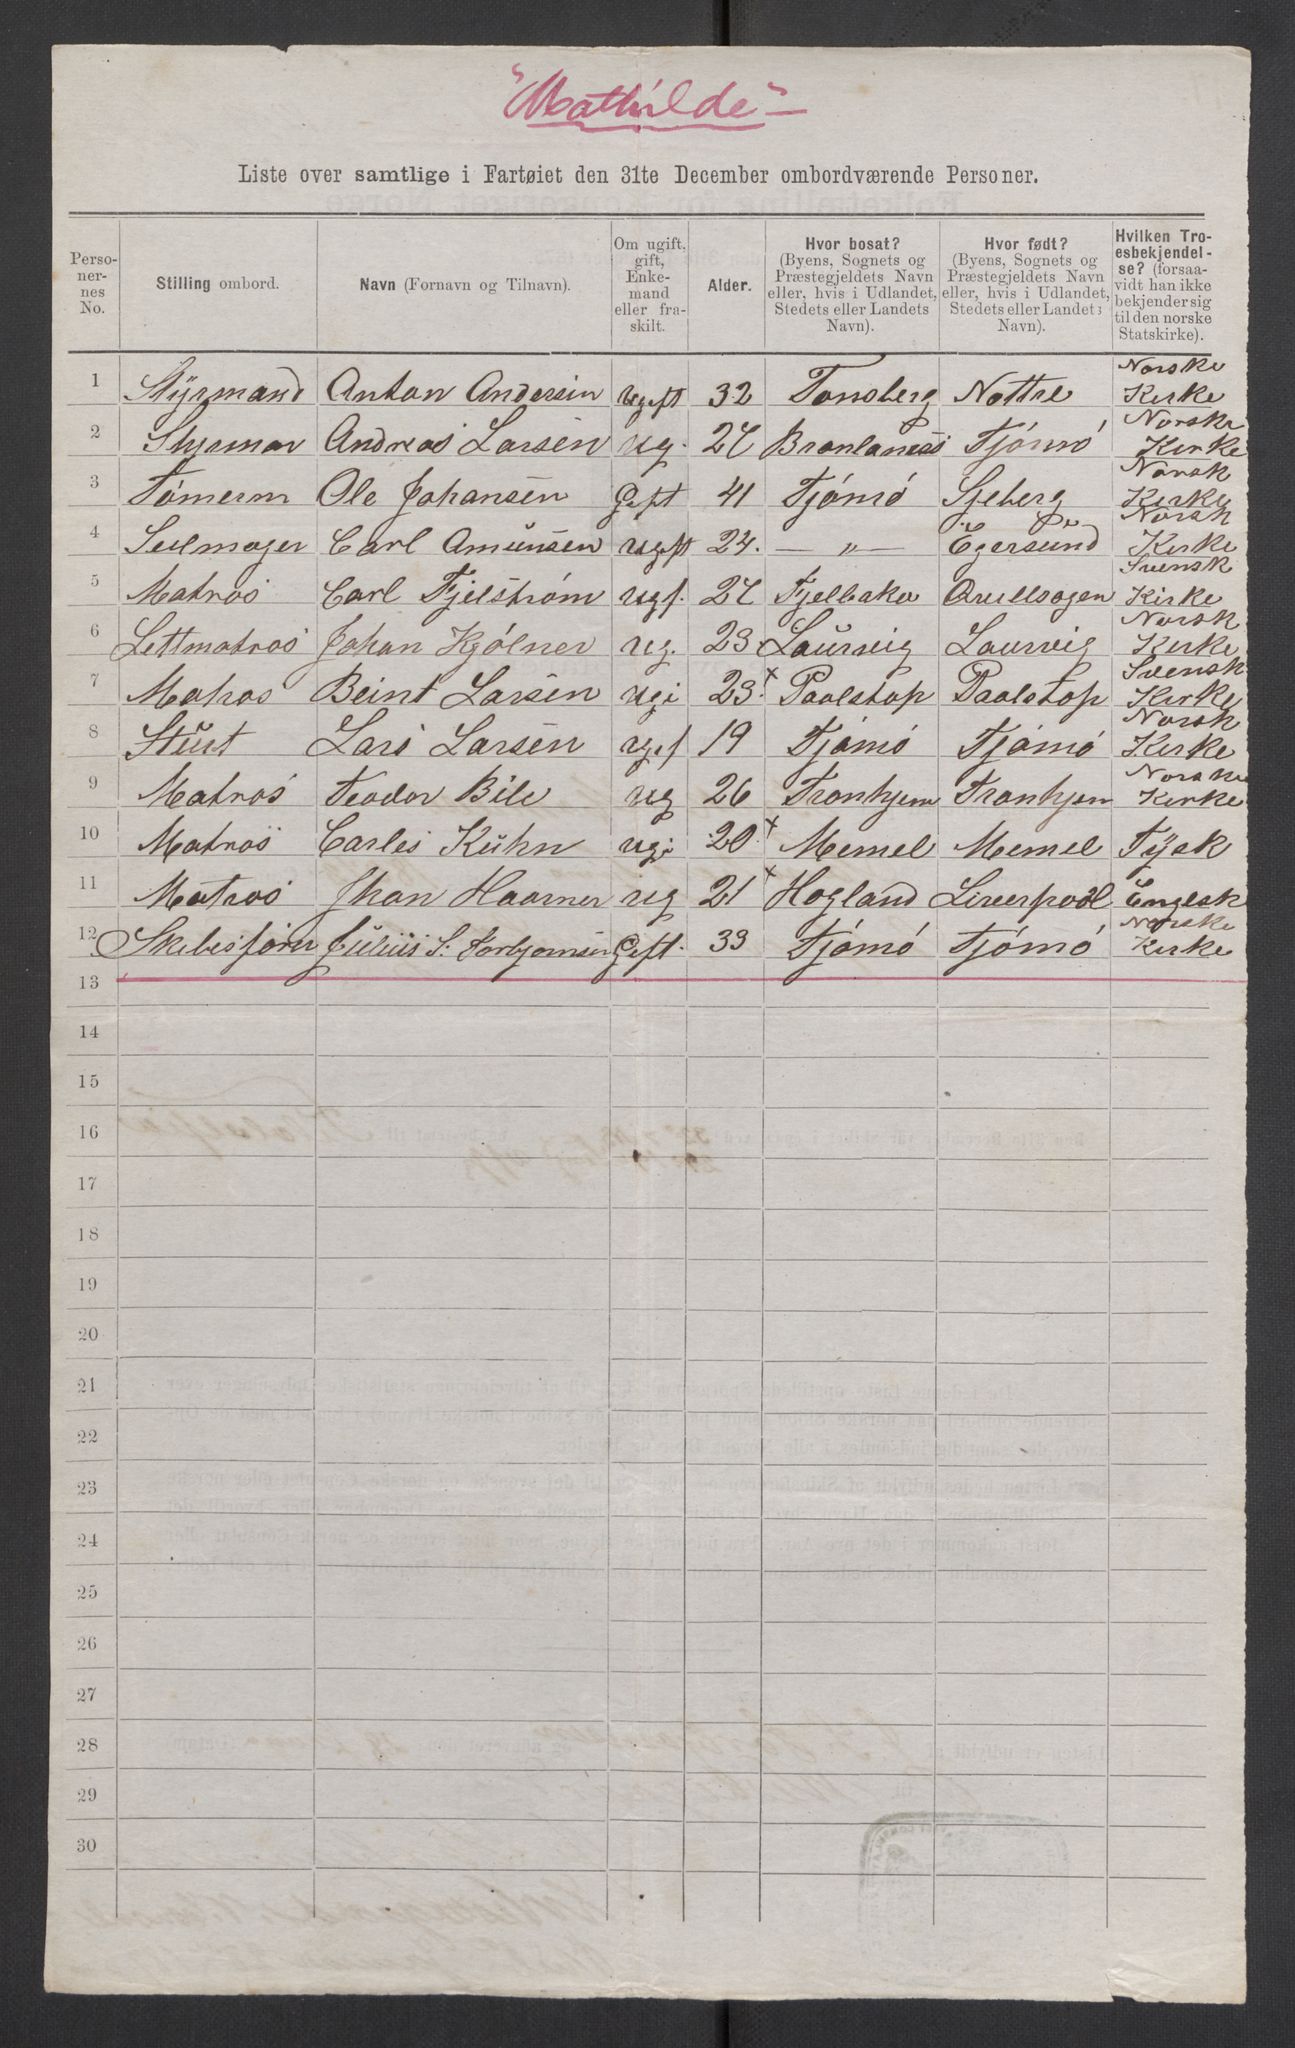 "Mathilde"
Liste over samtlige i Fartøiet den 31te December ombordværende Personer.
Perso-
ner-
nes
No.
Stilling ombord.
Navn (Fornavn og Tilnavn).
Om ugift,
gift,
Enke-
mand
eller fra-
skilt.
Alder.
Hvor bosat?
(Byens, Sognets og
Præstegjeldets Navn
eller, hvis i Udlandet,
Stedets eller Landets
Navn).
Hvor født?
(Byens, Sognets og
Præstegjeldets Navn
eller, hvis i Udlandet,
Stedets eller Landets
Navn).
Hvilken Tro-
esbekjendel-
se? (forsaa-
vidt han ikke
bekjender sig
til den norske
Statskirke).
1 Stÿrmand Anton Andersen ugeft 32 Tonsberg Nottre Norske Kirke
2 Styrman Andreas Larsen ug. 27 Bronlaness Tjómó Norske Kirke
3 Tómerm Ole Johansen Geft 41 Tjómó Sjeberg Norsk Kirke
4 Seilmager Carl Amunsen ugeft 24. — „ — Egersund Norsk Kirke
5 Matros Carl Fjelstrøm ugf. 27 Fjelbaka Svensk Kirke
6 Lettmatros Johan Kjólner ug. 23 Laurvig Laurvig Norsk Kirke
7 Matros Beint Larsen ugi 23 x Paolstop Paolstop Svensk Kirke
8 Stüert Lars Larsen ugef 19 Tjómó Tjómó Norsk Kirke
9 Matros Teodor Bile ug 26 Tronhjem Tronhjem Norske Kirke
10 Matros Carles Kühn ugi 20 x Memel Memel Tÿsk
11 Matros Jhan Haarner ug 21 x Hogland Liverpool Engelsk
12 Skibesfórer Julius S. Torbjornsen Geft. 33 Tjómó Tjómó Norske Kirke
13
14
15
16
17
18
19
20
21
22
23
24
25
26
27
28
29
30